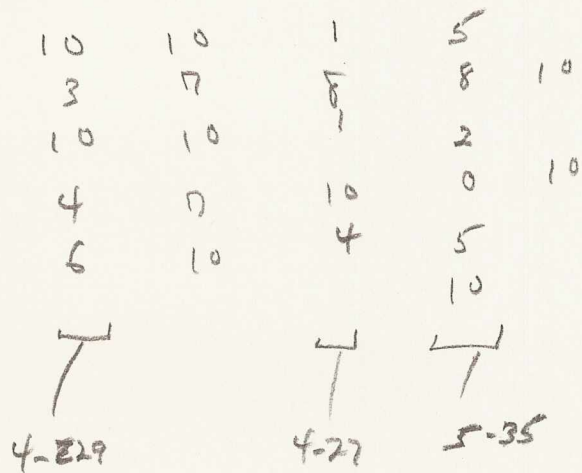 10 10 1 5
3 7 8 8 10
10 10 1 2
4 7 10 0 10
6 10 4 5
10
4-229 4-27 5-35